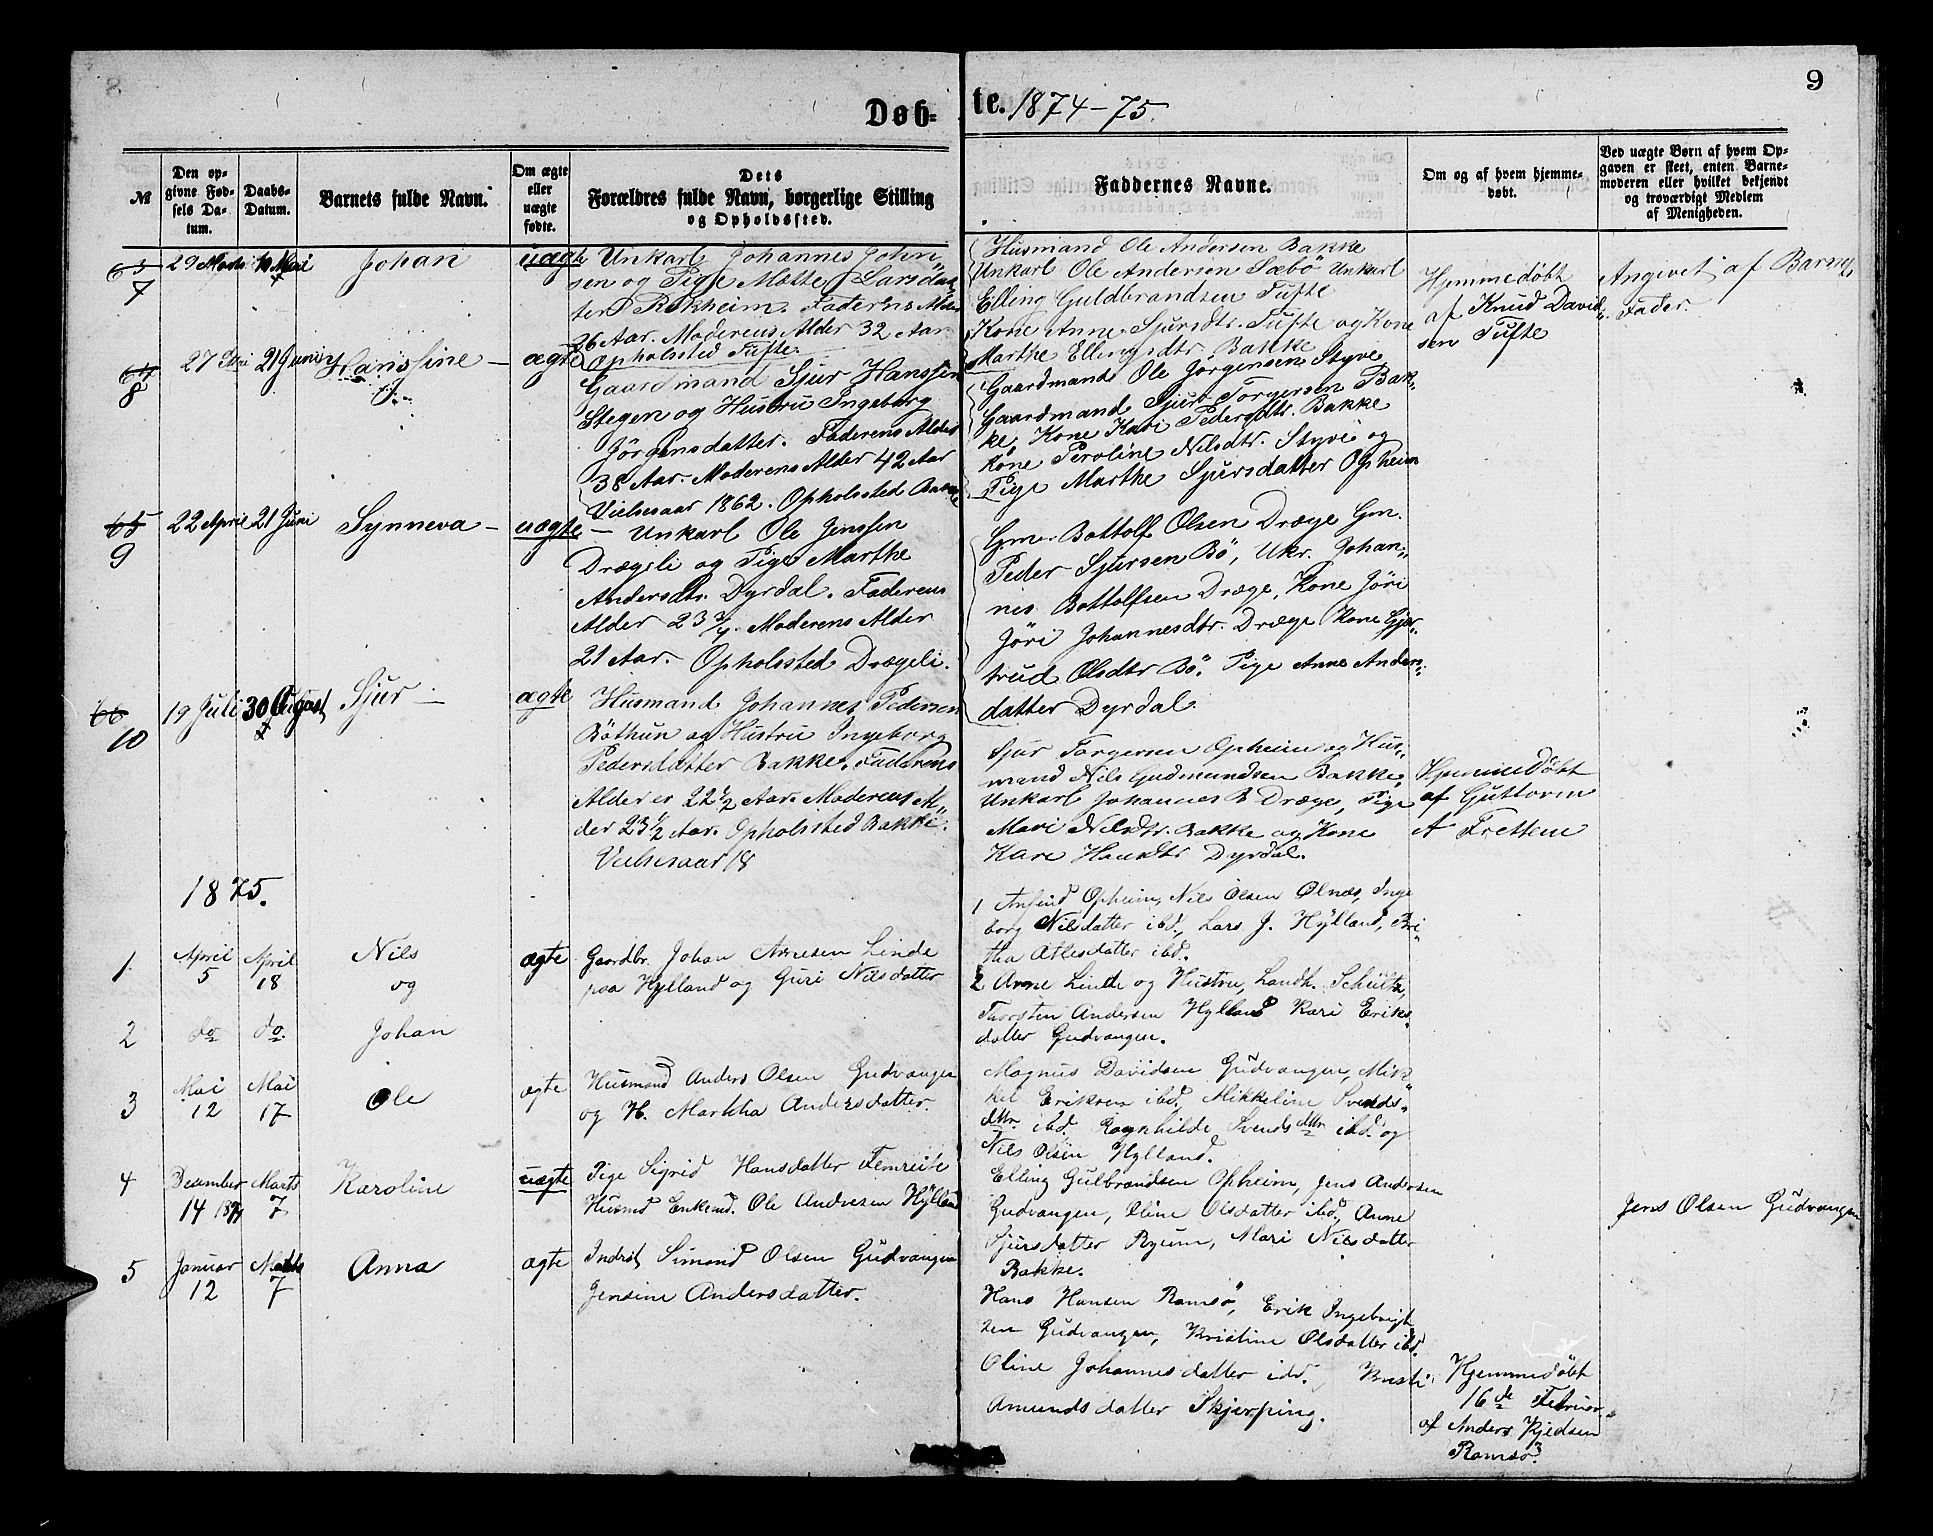 8
9
Døb-
te. 1874-75.
№
Den op-
givne Fød-
sels Da-
tum.
Daabs-
Datum.
Barnets fulde Navn.
Om ægte
eller
uægte
fødte.
Dets
Forældres fulde Navn, borgerlige Stilling
og Opholdssted.
Faddernes Navne.
Om og af hvem hjemme-
døbt.
Ved uægte Børn af hvem Op-
gaven er skeet, enten Barne-
moderen eller hvilket bekjendt
og troværdigt Medlem
af Menigheden.
63
7
29 Marts
Mai
Johan
uægte
Unkarl Johannes John
sen og Pige Mætte Larsdat
ter Rekheim. Faderens Alder
26 Aar. Moderens Alder 32 Aar
Opholssted Tufte.
Husmand Ole Andersen Bakke
Unkarl Ole Andersen Sæbö Unkarl
Elling Guldbrandsen Tufte
Kone Anne Sjursdtr. Tufte og Kone
Marthe Ellingsdtr. Bakke
Hjemmedöbt
af Knud David
sen Tufte
Angivet af Barnets
Fader.
64
8
27
21 Juni
Hanssine
ægte
Gaardmand Sjur Hanssen
Stegen og Hustru Ingeborg
Jörgensdatter. Faderens Alder
38 Aar. Moderens Alder 42 Aar
Vielsesaar 1862. Opholssted
Gaardmand Ole Jörgensen Styve
Gaardmand Sjur Torgersen Bak-
ke, Kone Kari Pedersdtr. Bakke
Kone Peroline Nilsdtr. Styvi og
Pige Marthe Sjursdatter Opheim
65
9
22 April
21 Juni
Synneva
uægte
Unkarl Ole Jenssen
Drægeli og Pige Marthe
Andersdtr. Dyrdal. Faderens
Alder 23 3/4. Moderens Alder
21 Aar. Opholssted Drægeli.
Gm. Bottolf Olsen Dræge Gm.
Peder Sjursen Bö, Ukr. Johan-
nes Bottolfsen Dræge, Kone Jöri
Jöri Johannesdtr. Dræge Kone Gjer-
trud Olsdtr Bö. Pige Anne Anders-
datter Dyrdal.
66
10
19 Juli
30 August
Sjur
ægte
Husmand Johannes Pedersen
Böthun og Hustru Ingeborg
Pedersdatter Bakke. Faderens
Alder er 22 1/2 Aar. Moderens Al-
der 23 1/2 Aar. Opholssted Bakke.
Vielsesaar 18
Sjur Torgersen Opheim og Hus-
mand Nils Gudmundsen Bakke,
Unkarl Johannes B Dræge, Pige
Mari Nilsdtr. Bakke og Kone
Kari Hansdtr Dyrdal.
Hjemmedöbt
af Guttorm
A Frettem
1875.
1.
April
5
April
18
Nils
og
ægte
Gaardbr. Johan Arnesen Linde
paa Hylland og Guri Nilsdatter
1 Anfind Opheim, Nils Olsen Olnæs, Inge
borg Nilsdatter ibd., Lars J. Hylland, Bri-
tha Atlesdatter ibd.
2
do
do.
Johan
2 Arne Linde og Hustru, Landh. Schultz,
Thorsten Andersen Hylland Kari Eriks-
datter Gudvangen.
3
Mai
12
Mai
17
Ole
ægte
Husmand Anders Olsen Gudvangen
og H. Martha Andersdatter.
Magnus Davidsen Gudvangen, Mik-
kel Eriksen ibd. Mikkeline Svends-
dtr. ibd. Ragnhilde Svendsdtr ibd. og
Nils Olsen Hylland.
4
December
14 1874
Marts
7
Karoline
uægte
Pige Sigrid Hansdatter Femreite
Husmd Enkemd. Ole Andresen Hylland
Elling Gulbrandsen Opheim, Jens Andersen
Gudvangen, Oline Olsdatter ibd., Anne
Sjursdatter Ryum, Mari Nilsdatter
Bakke.
Jens Olsen Gudvangen
5
Januar
12
Marts
7
Anna
ægte
Indrst Simond Olsen Gudvangen
Jensine Andersdatter.
Hans Hansen Ramsö, Erik Ingebrigt
sen Gudvangen, Kristine Olsdatter ibd.
Oline Johannesdatter ibd.
Amundsdatter Skjerping.
Hjemmedöbt
16de Februar
af Anders Kjeldsen
Ramsö.